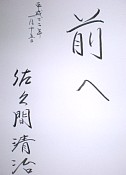 平成十二年
一月十五日
前へ
佐久間清治